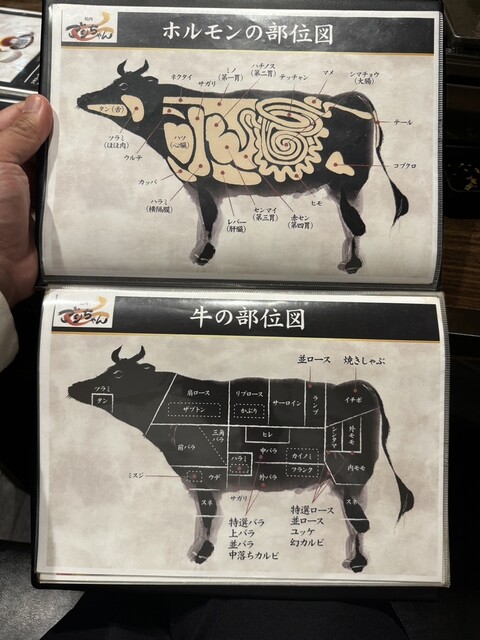 焼肉
でりちゃん
ホルモンの部位図
ネクタイ
サガリ
ミノ
(第一胃)
ハチノス
(第二胃)
テッチャン
マメ
シマチョウ
(大腸)
タン(舌)
テール
ツラミ
(ほほ肉)
ハツ
(心臓)
ウルテ
コブクロ
カッパ
ハラミ
(横隔膜)
レバー
(肝臓)
センマイ
(第三胃)
赤セン
(第四胃)
ヒモ
牛の部位図
並ロース 焼きしゃぶ
ツラミ
タン
肩ロース
ザブトン
リブロース
かぶり
サーロイン
ランプ
イチボ
三角
バラ
前バラ
ヒレ
シンタマ
外モモ
中バラ
カイノミ
ハラミ
フランク
内モモ
ミスジ
ウデ
外バラ
スネ
サガリ
スネ
特選バラ
上バラ
並バラ
中落ちカルビ
特選ロース
並ロース
ユッケ
幻カルビ